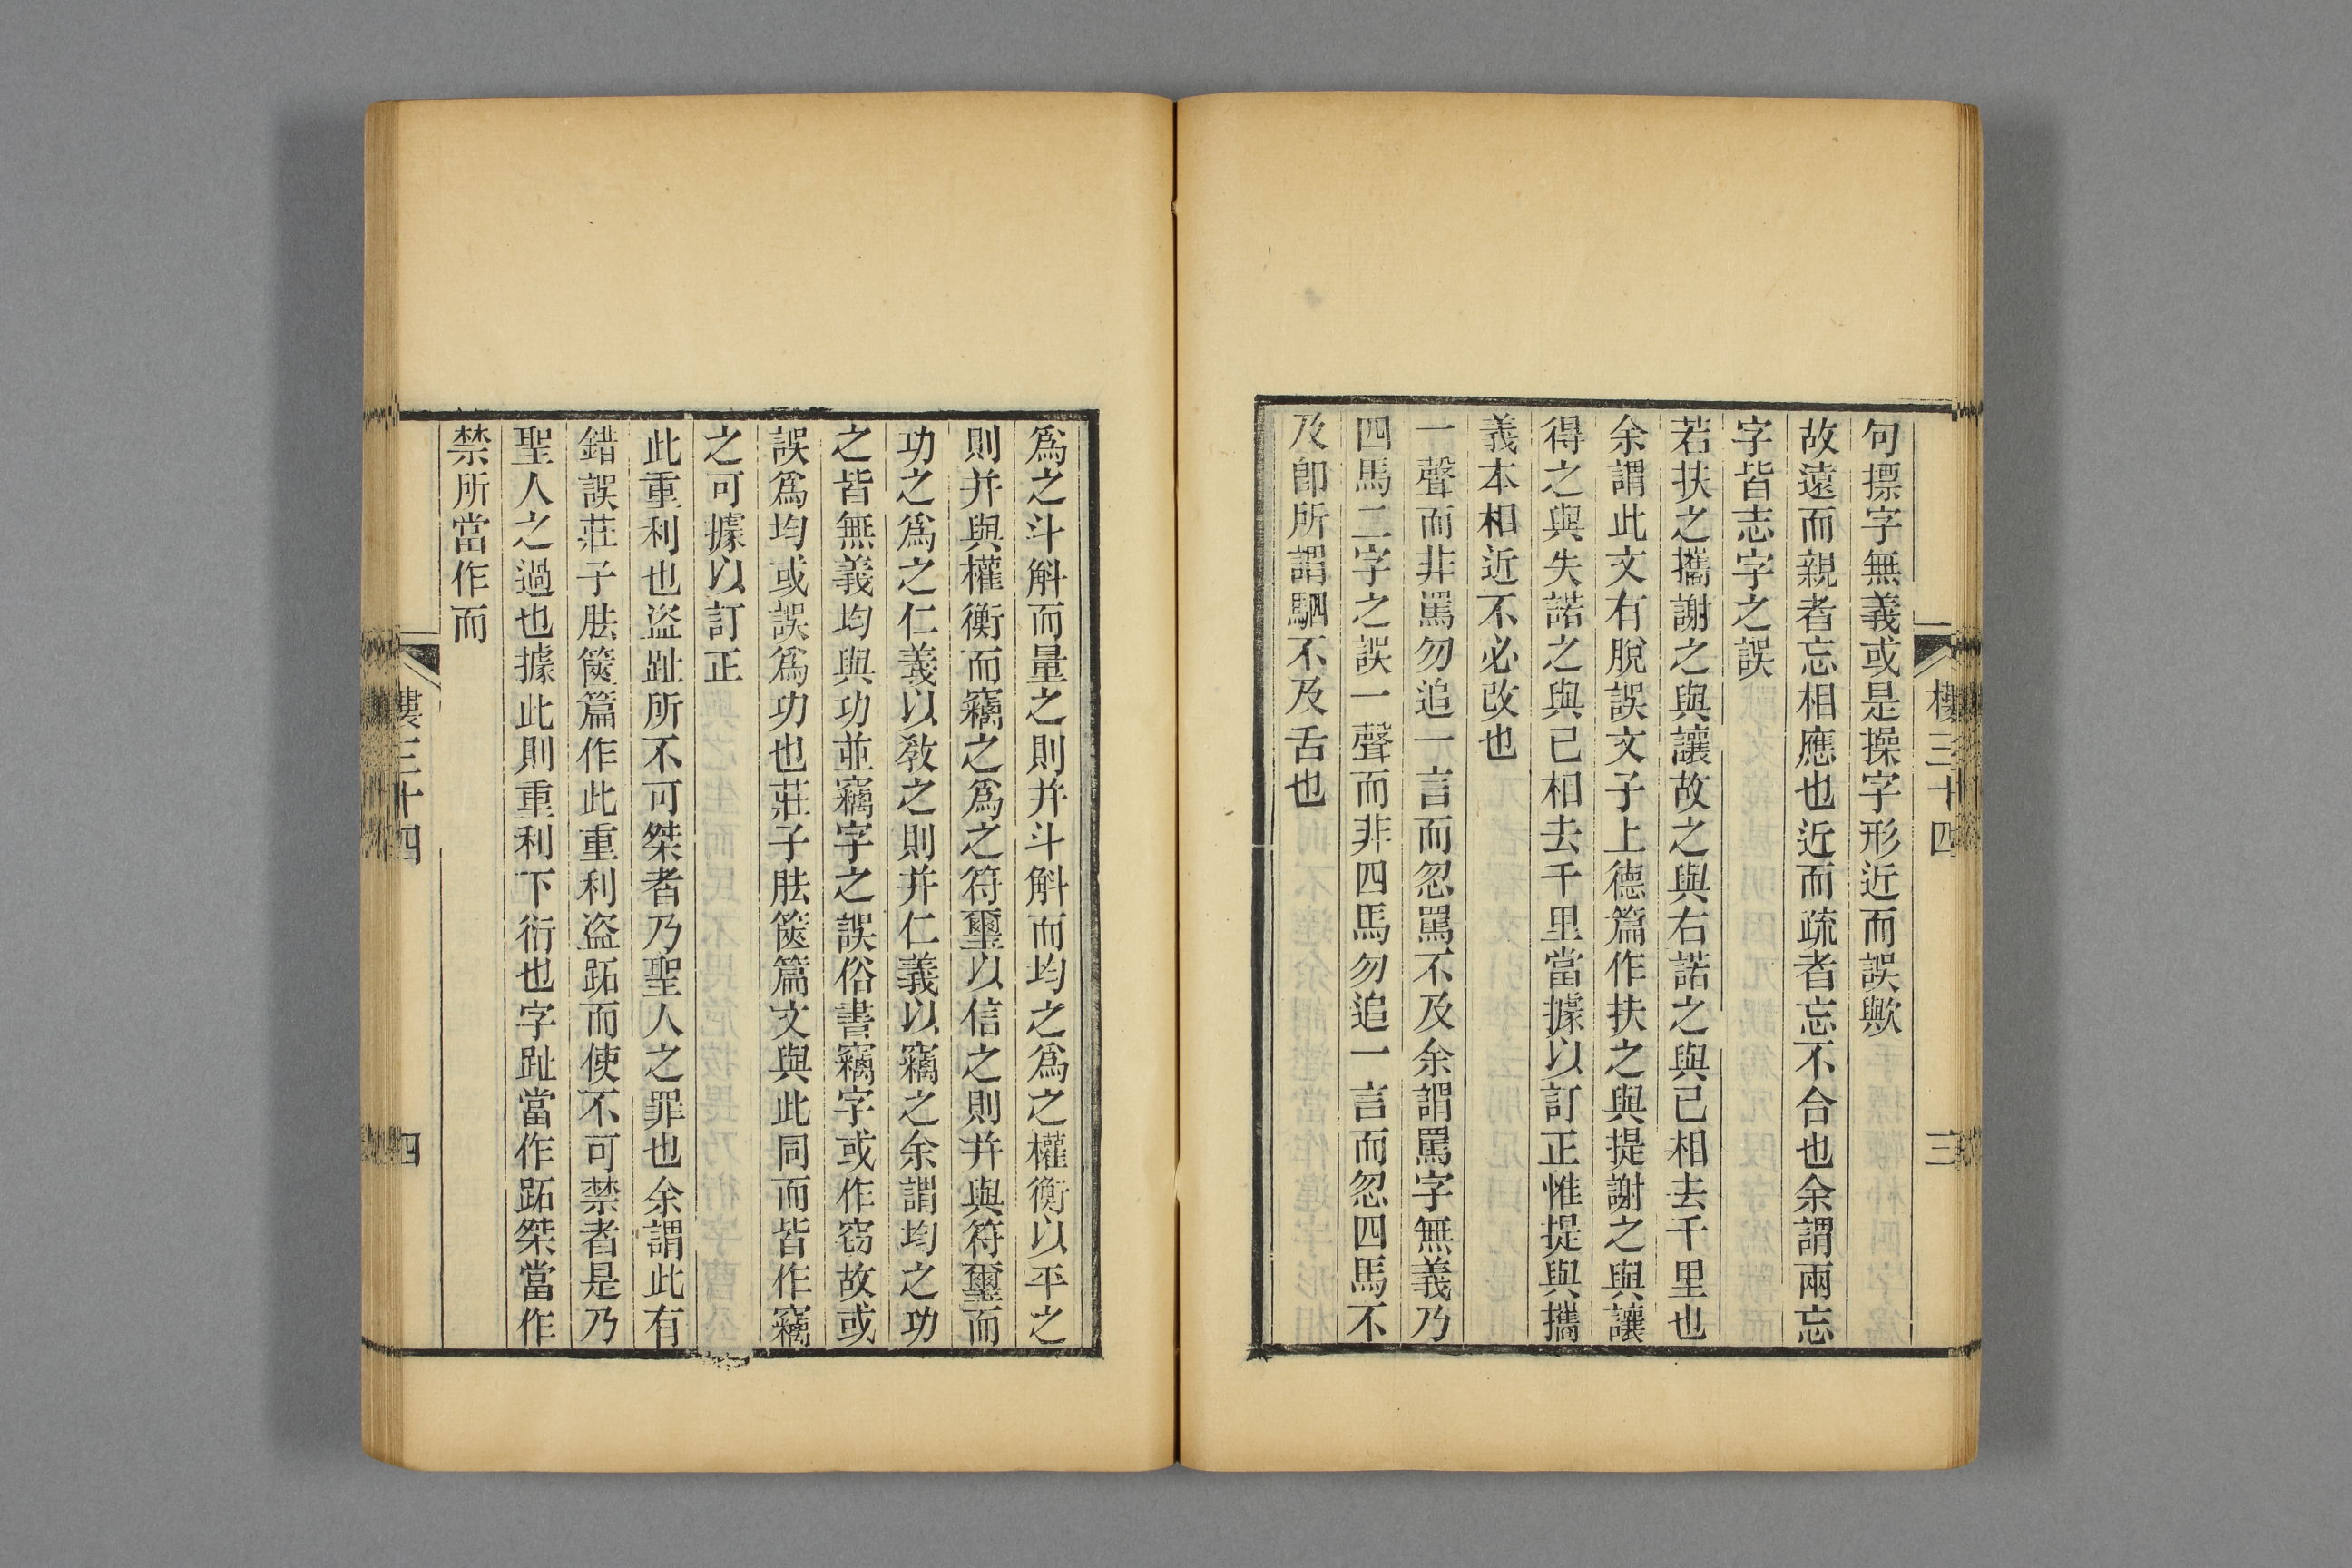 句摽字無義或是操字形近而誤歟
故遠而親者忘相應也近而疏者忘不合也余謂兩忘
字皆志字之誤
若扶之攜謝之與讓故之與右諾之與已相去千里也
余謂此文有脫誤文子上德篇作扶之與提謝之與讓
得之與失諾之與已相去千里當據以訂正惟提與攜
義本相近不必改也
一聲而非駡勿追一言而忽駡不及余謂駡字無義乃
四馬二字之誤一聲而非四馬勿追一言而忽四馬不
及卽所謂駟不及舌也
樓三十四
三
爲之斗斛而量之則并斗斛而均之爲之權衡以平之
則并與權衡而竊之爲之符璽以信之則并與符璽而
功之爲之仁義以教之則并仁義以竊之余謂均之功
之皆無義均與功並竊字之誤俗書竊字或作窃故或
誤爲均或誤爲功也莊子胠篋篇文與此同而皆作竊
之可據以訂正
此重利也盜趾所不可桀者乃聖人之罪也余謂此有
錯誤莊子胠篋篇作此重利盜跖而使不可禁者是乃
聖人之過也據此則重利下衍也字趾當作跖桀當作
禁所當作而
樓三十四
四